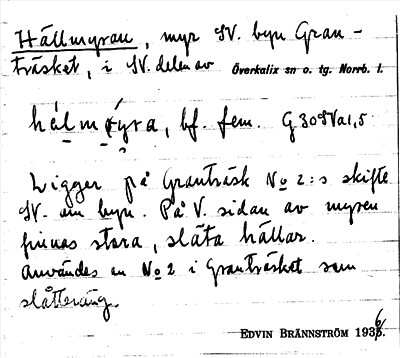 Hällmyran, myr SV. byn Gran-
träsket, i SV. delen av Överkalix sn o. tg. Norrb. l.
hälmøyra, bf. fem. G30SVa1,5
Ligger på Granträsk No 2:s skifte
SV. om byn. På V. sidan av myren
finnas stora, släta hällar.
Användes av No 2 i Granträsket som
slåtteräng.
EDVIN BRÄNNSTRÖM 1936.